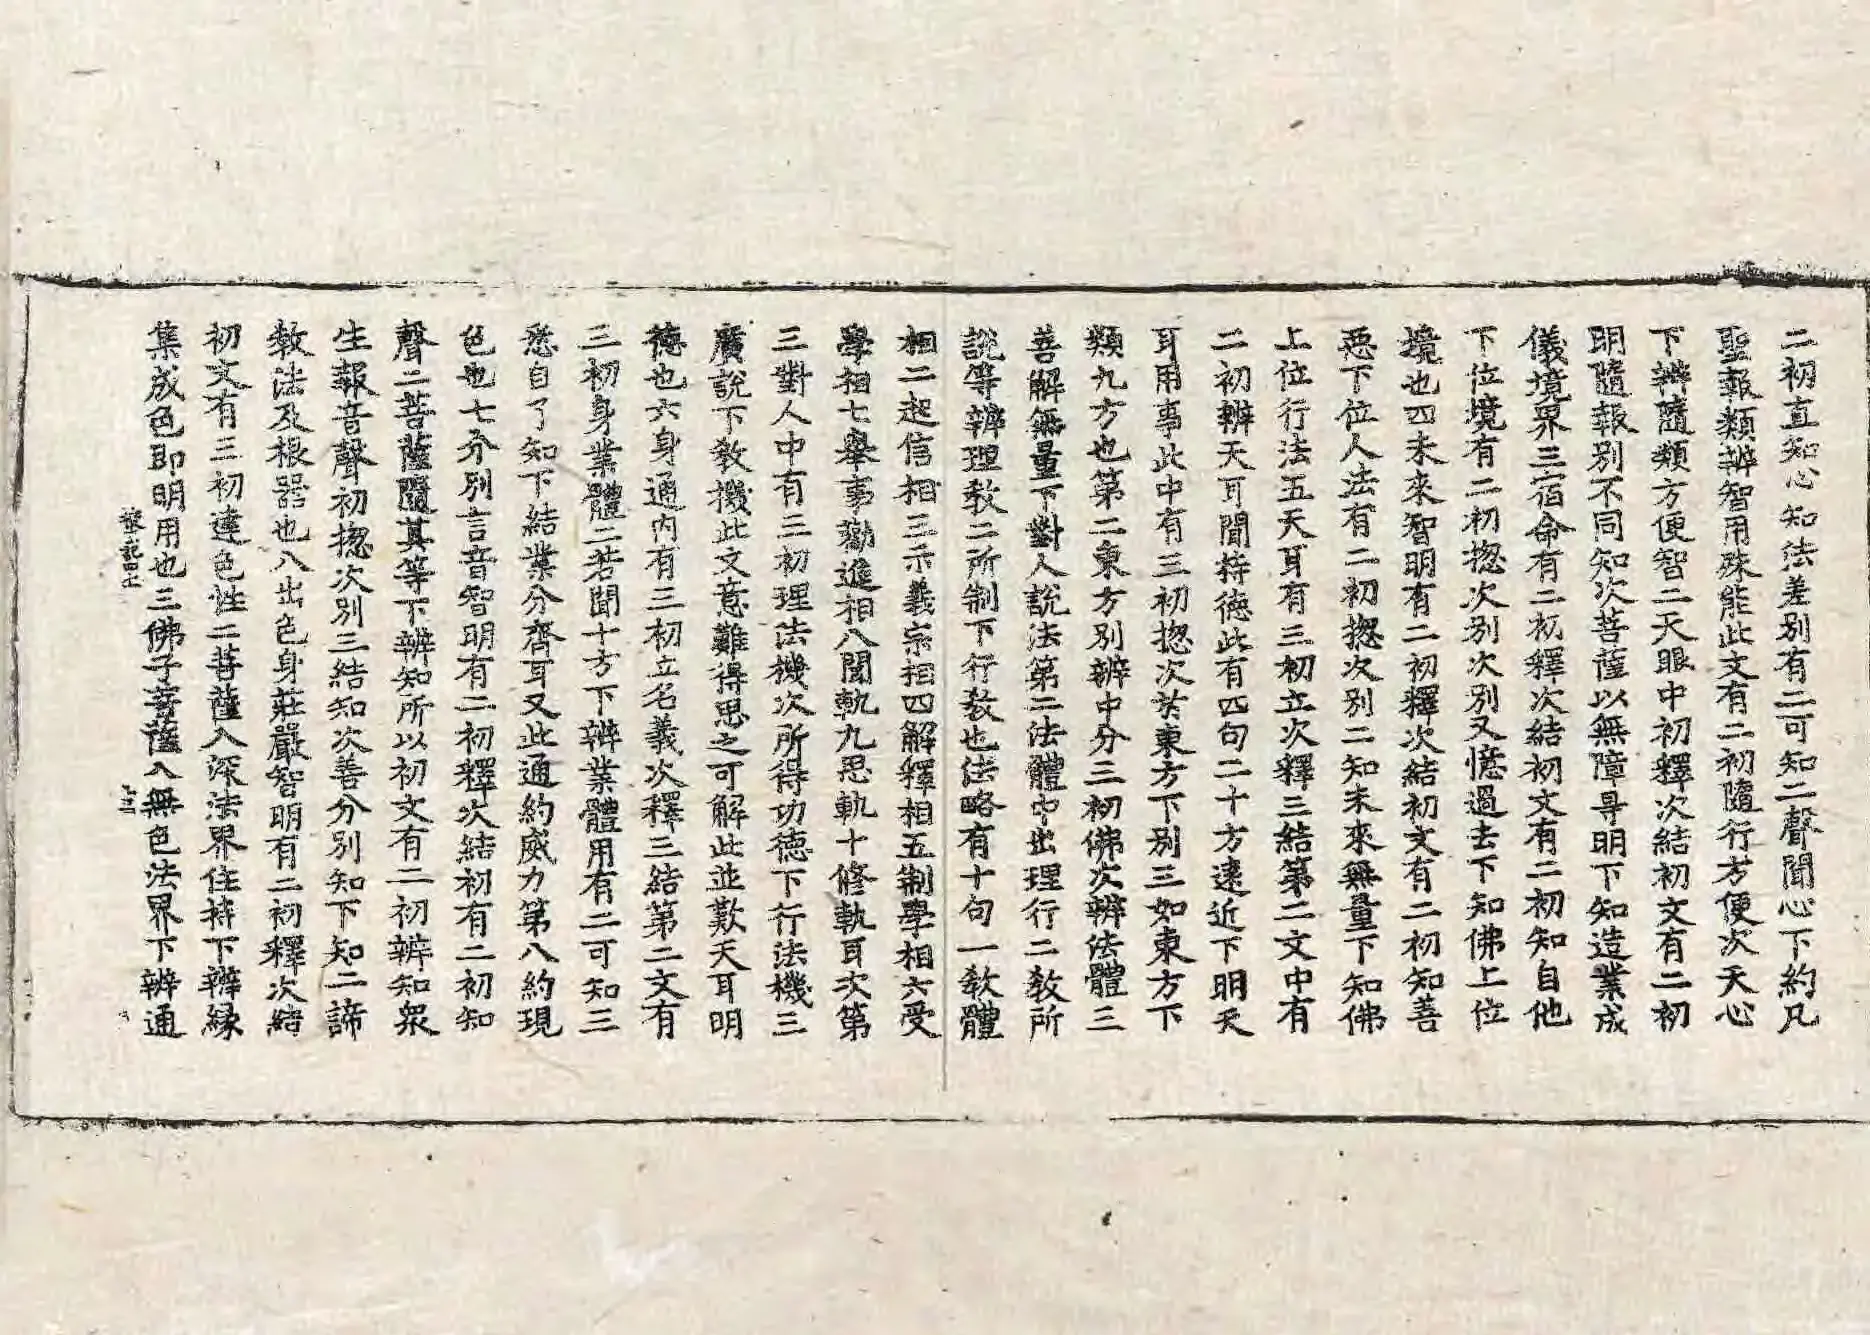 二初直知心知法差別有二可知二聲聞心下約凡
聖報類辨智用殊能此文有二初隨行方便次天心
下辨隨類方便智二天眼中初釋次結初文有二初
明隨報別不同知次菩薩以無障㝵明下知造業成
儀境界三宿命有二初釋次結初文有二初知自他
下位境有二初揔次別次別又憶過去下知佛上位
境也四未來智明有二初釋次結初文有二初知善
惡下位人法有二初揔次別二知未來無量下知佛
上位行法五天耳有三初立次釋三結第二文中有
二初辨天耳聞持德此有四句二十方遠近下明天
耳用事此中有三初揔次於東方下別三如東方下
類九方也第二東方別辨中分三初佛次辨法體三
善解無量下對人說法第二法體中出理行二教所
說等辨理教二所制下行教也法略有十句一教體
相二起信相三示義宗相四解釋相五制學相六受
學相七舉事勸進相八聞軌九思軌十修執耳次第
三對人中有三初理法機次所得功德下行法機三
廣說下教機此文意難得思之可解此並歎天耳明
德也六身通內有三初立名義次釋三結第二文有
三初身業體二若聞十方下辨業體用有二可知三
悉自了知下結業分齊耳又此通約威力第八約現
色也七分別言音智明有二初釋次結初有二初知
聲二菩薩隨其等下辨知所以初文有二初辨知衆
生報音聲初揔次別三結知次善分別知下知二諦
教法及根器也八出色身莊嚴智明有二初釋次結
初文有三初達色性二菩薩入深法界住持下辨緣
集成色即明用也三佛子菩薩入無色法界下辨通